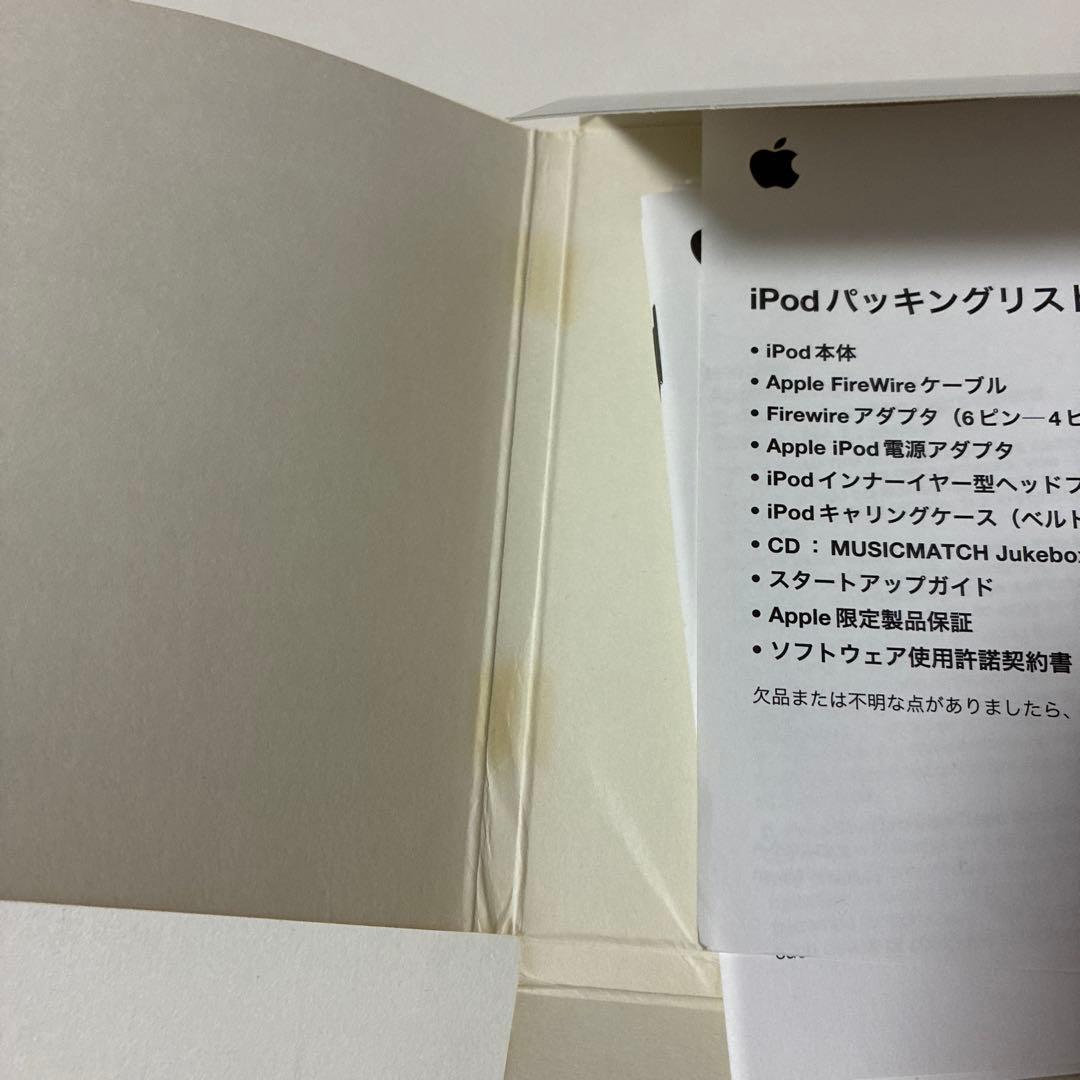 iPodパッキングリスト
• iPod本体
• Apple FireWireケーブル
• Firewireアダプタ（6ピン—4ピ
• Apple iPod電源アダプタ
• iPodインナーイヤー型ヘッドフ
• iPodキャリングケース（ベルト
• CD： MUSICMATCH Jukebox
• スタートアップガイド
• Apple限定製品保証
• ソフトウェア使用許諾契約書
欠品または不明な点がありましたら、